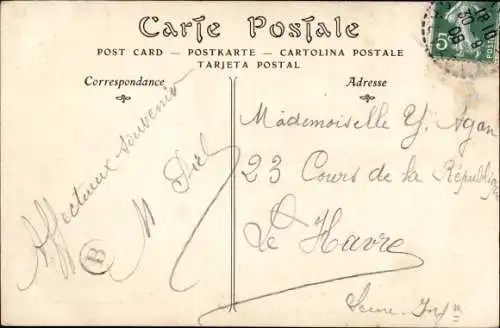 Carte Postale
POST CARD — POSTKARTE — CARTOLINA POSTALE
TARJETA POSTAL
Correspondance
Adresse
Affectueux souvenir
M
B
Mademoiselle Y. Agan
23 Cours de la République
Le Havre
Seine-Infre
5